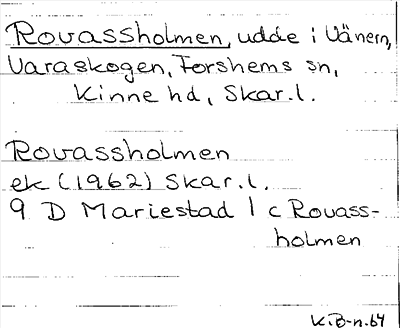 Rovassholmen, udde i Vänern,
Varaskogen, Forshems sn,
Kinne hd, Skar.l.
Rovassholmen
ek (1962) Skar.l.
9 D Mariestad 1 c Rovass-
holmen
K.B-n.64